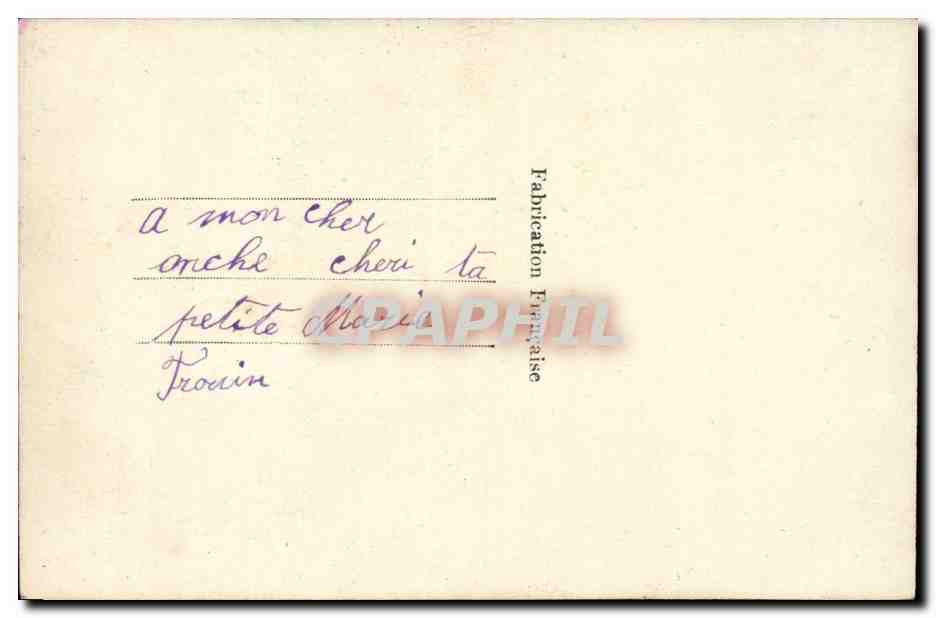 a mon cher
onche cheri ta
petite Maria
Trouin
Fabrication Française
CPAPHIL